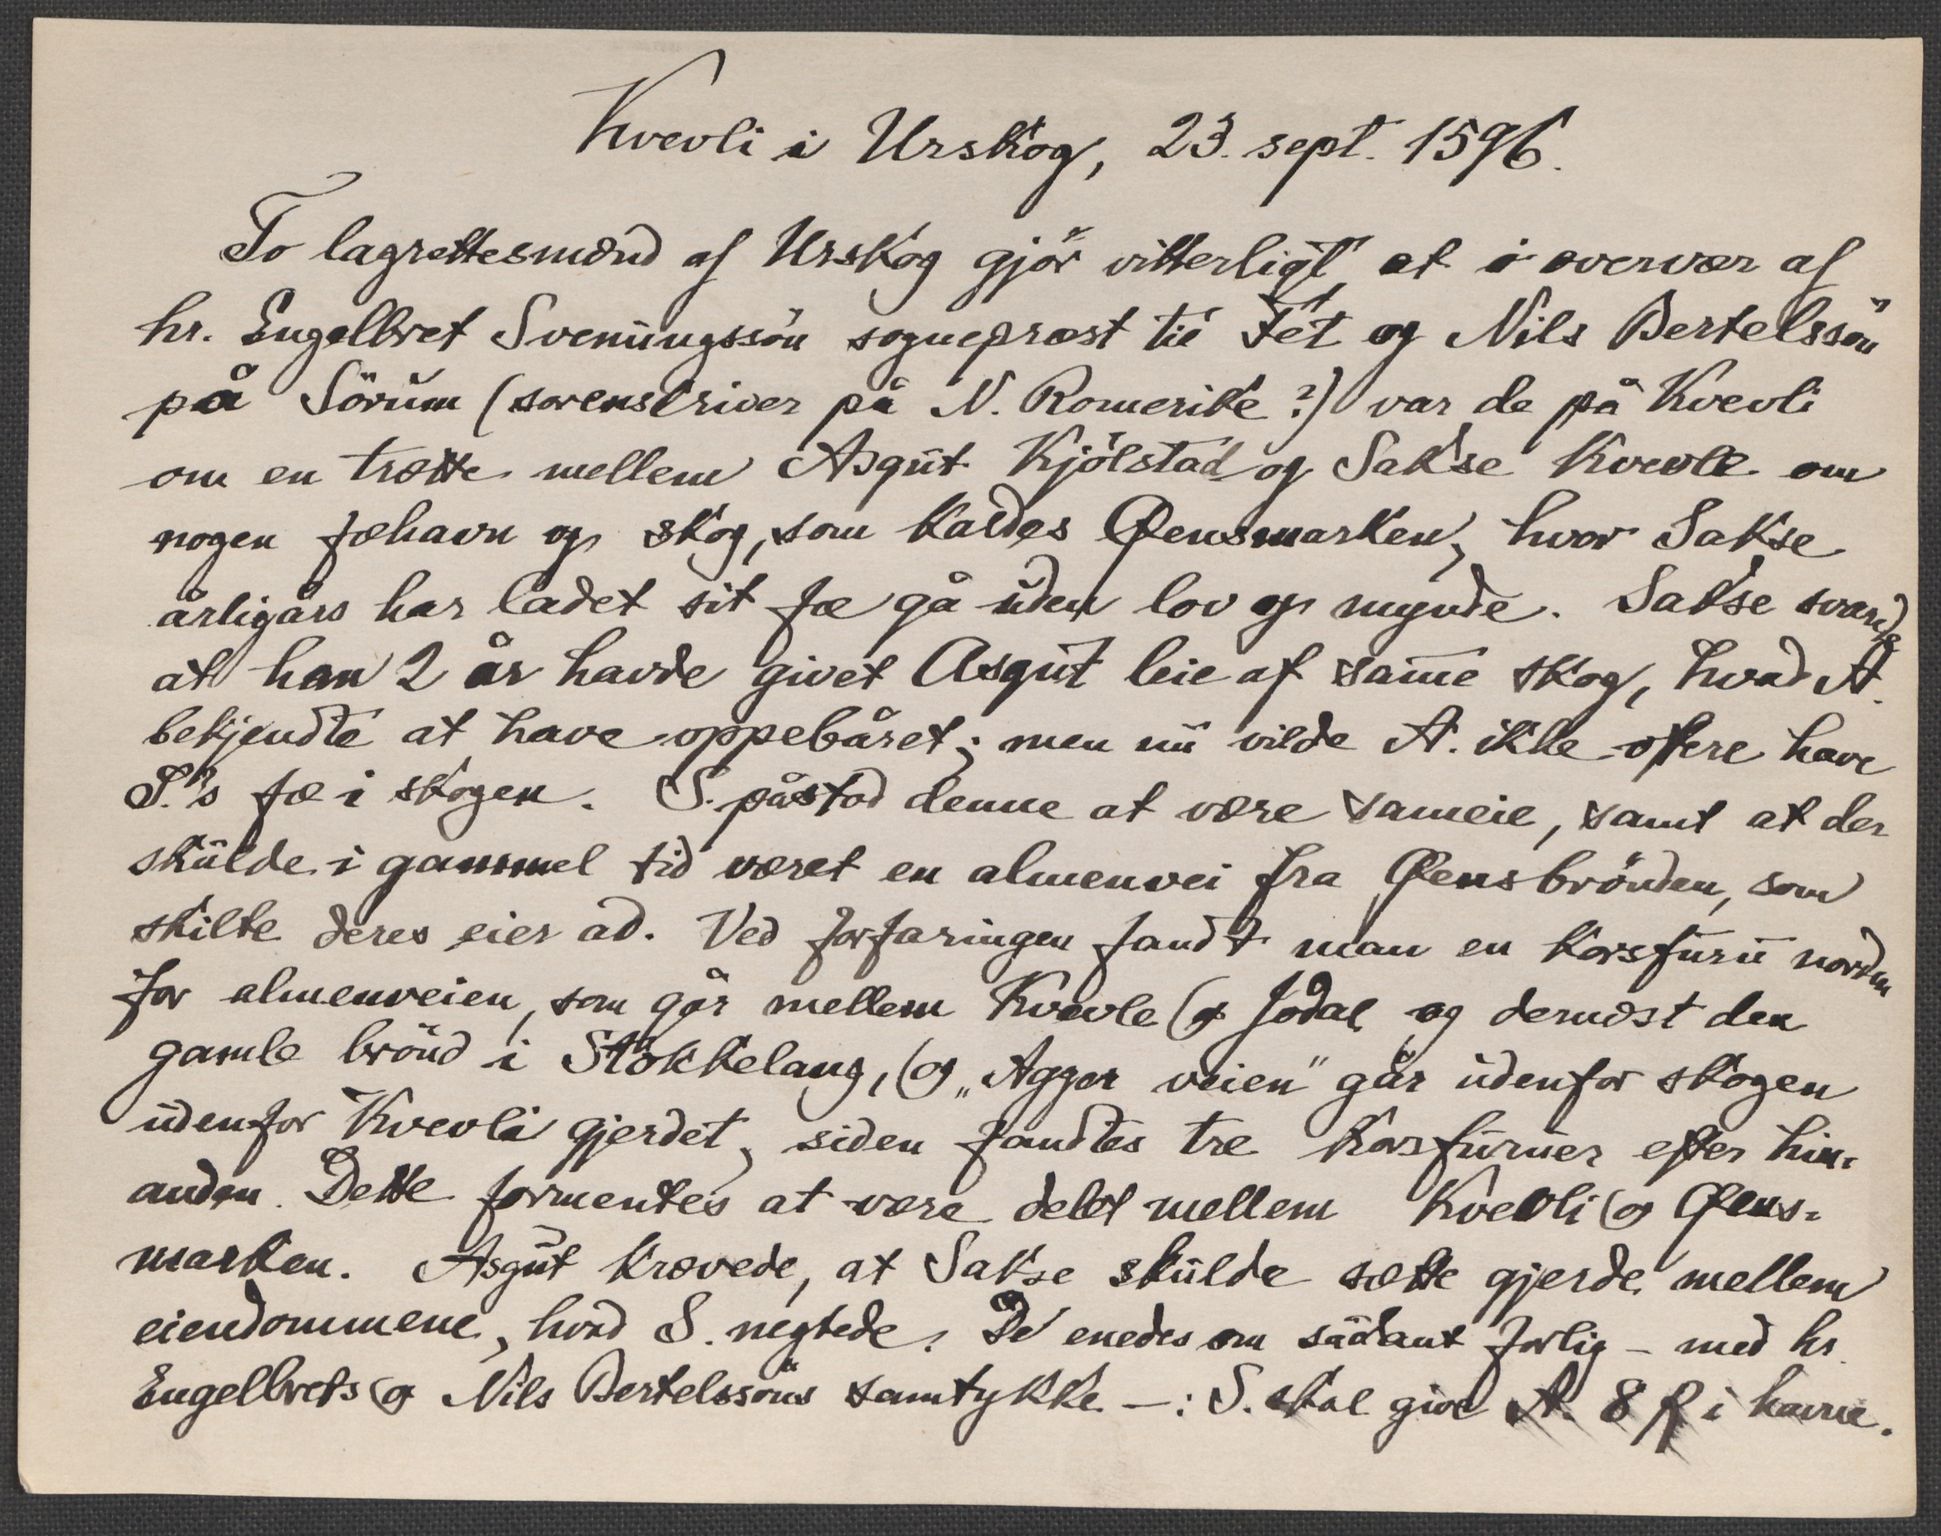 Kvevli i Urskog, 23. sept. 1596.
To lagrettesmænd af Urskog gjör vitterligt at i overvær af
hr. Engelbret Sveningssön sognepræst til Fet og Nils Bertelssön
på Sörum (sorenskriver på N. Romerike?) var de på Kvevli
om en trætte mellem Asgut Kjölstad og Sakse Kvevle om
nogen fæhavn og skog, som kaldes Øensmarken, hvor Sakse
årligårs har ladet sit fæ gå uden lov og mynde. Sakse svarede
at han 2 år havde givet Asgut leie af samme skog, hvad A.
bekjendte at have oppebåret; men nu vilde A. ikke oftere have
S.'s fæ i skogen. S. påstod denne at være sameie, samt at der
skulde i gammel tid været en almenvei fra Øensbrönden, som
skilte deres eier ad. Ved forfaringen fandt man en korsfuru norden
for almenveien, som går mellem Kvevle og Jodal og dernæst den
gamle brönd i Stokkelang, og „Agger veien" går udenfor skogen
udenfor Kvevli gjerdet, siden fandtes tre korsfuruer efter hin-
anden. Dette formentes at være delet mellem Kvevli og Øens-
marken. Asgut krævede, at Sakse skulde sætte gjerde mellem
eiendommene, hvad S. negtede. De enedes om sådant forlig – med hr.
Engelbrets og Nils Bertelssöns samtykke –: S. skal give A. 8 β i havne.